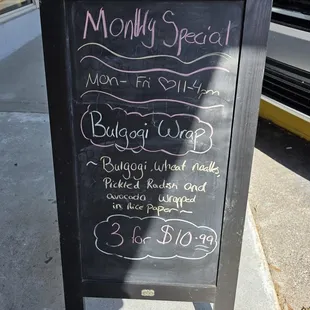 Monthly Special
Mon- Fri ♡ 11-4pm
Bulgogi Wrap
~ Bulgogi, wheat noodles,
Pickled Radish and
avocado wrapped
in Rice paper ~
3 for $10.99